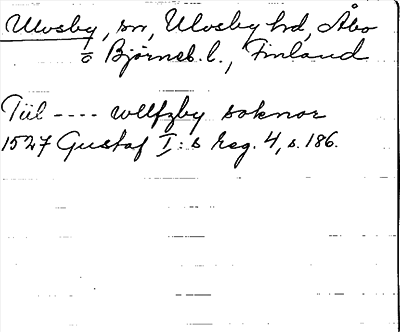 Ulvsby, sn, Ulvsby hd, Åbo
o Björneb. l., Finland
Tiil ---- wllfzby soknor
1527 Gustaf I:s Reg. 4, s. 186.